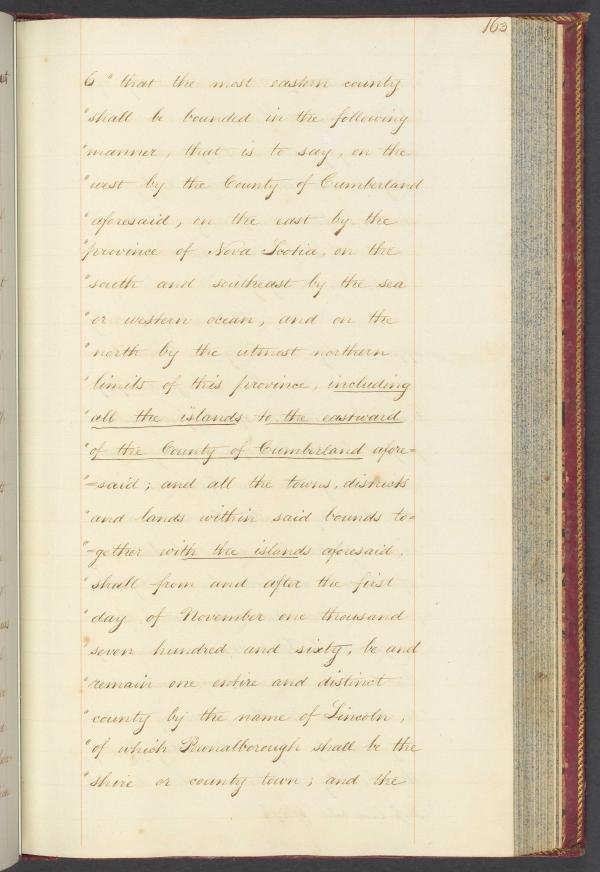 163
6 " that the most eastern county
" shall be bounded in the following
" manner, that is to say, on the
" west by the County of Cumberland
" aforesaid, on the east by the
" province of Nova Scotia, on the
" south and southeast by the sea
" or western ocean, and on the
" north by the utmost northern
" limits of this province, including
" all the islands to the eastward
" of the County of Cumberland afore=
" =said; and all the towns, districts
" and lands within said bounds to=
" =gether with the islands aforesaid,
" shall from and after the first
" day of November one thousand
" seven hundred and sixty, be and
" remain one entire and distinct
" county by the name of Lincoln,
" of which Pownalborough shall be the
" shire or county town; and the